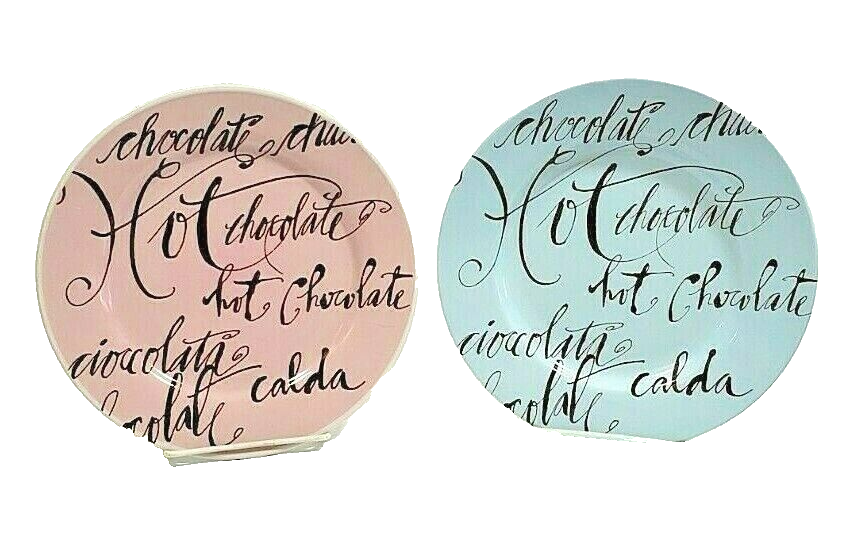 chocolate
Hot chocolate
hot Chocolate
cioccolata
calda
chocolate
Hot chocolate
hot Chocolate
cioccolata
calda